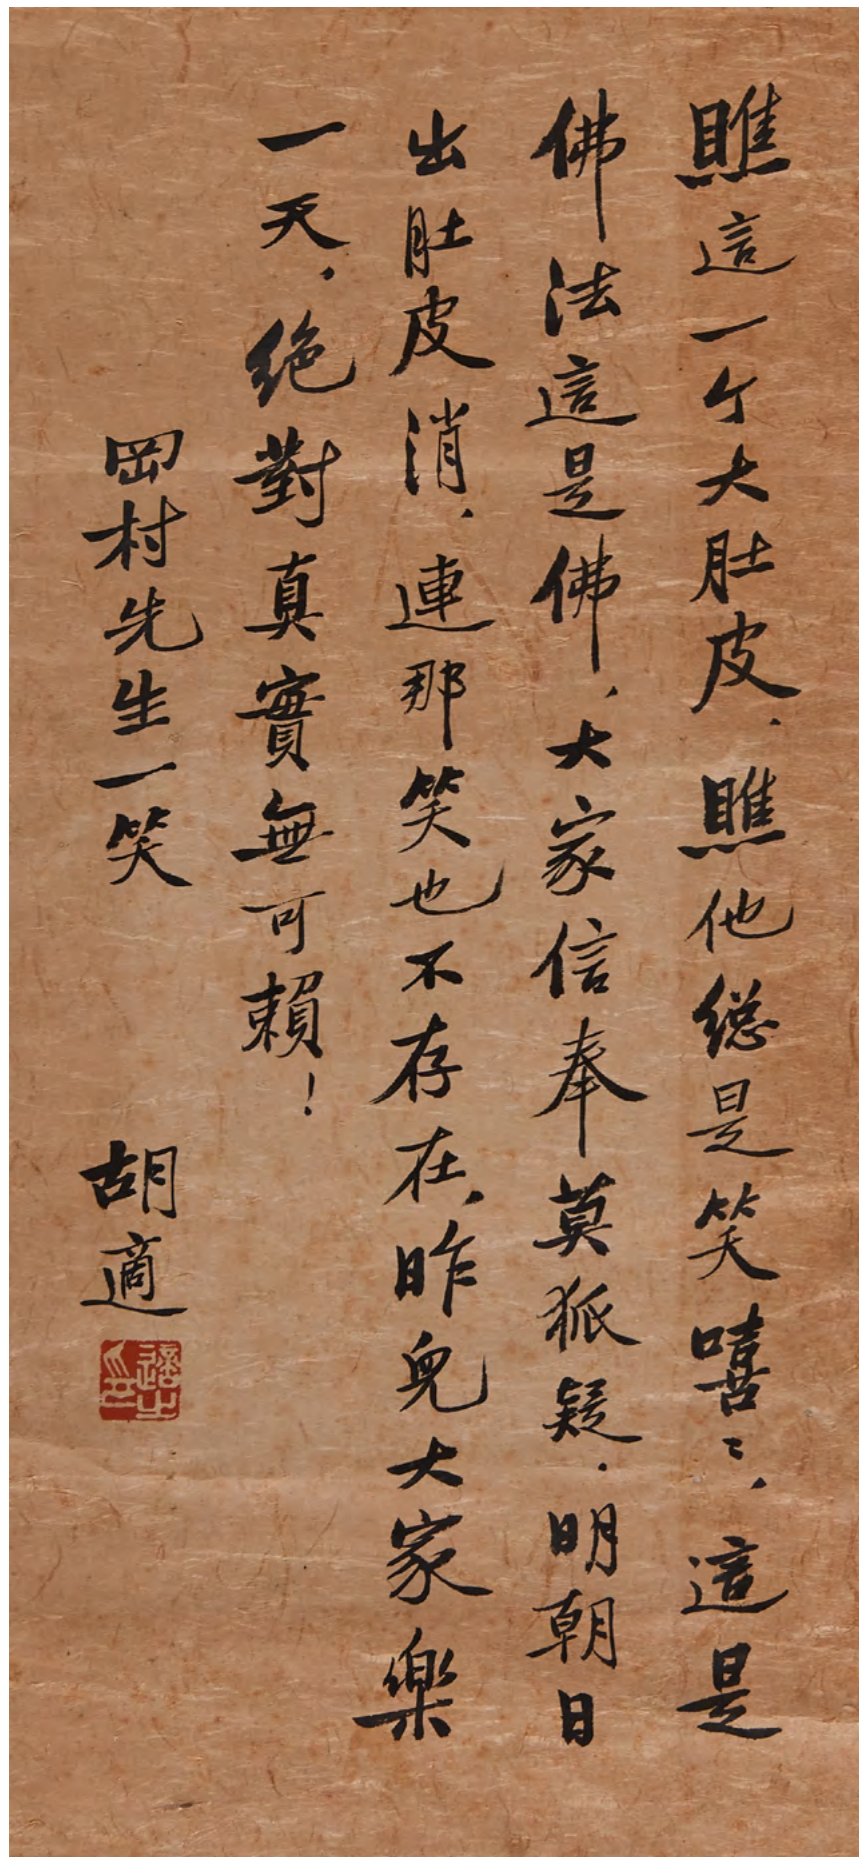 瞧這一个大肚皮，瞧他總是笑嘻〻，這是
佛法這是佛，大家信奉莫狐疑．明朝日
出肚皮消，連那笑也不存在，昨兒大家樂
一天，絕對真實無可賴！
岡村先生一笑
胡適
適之